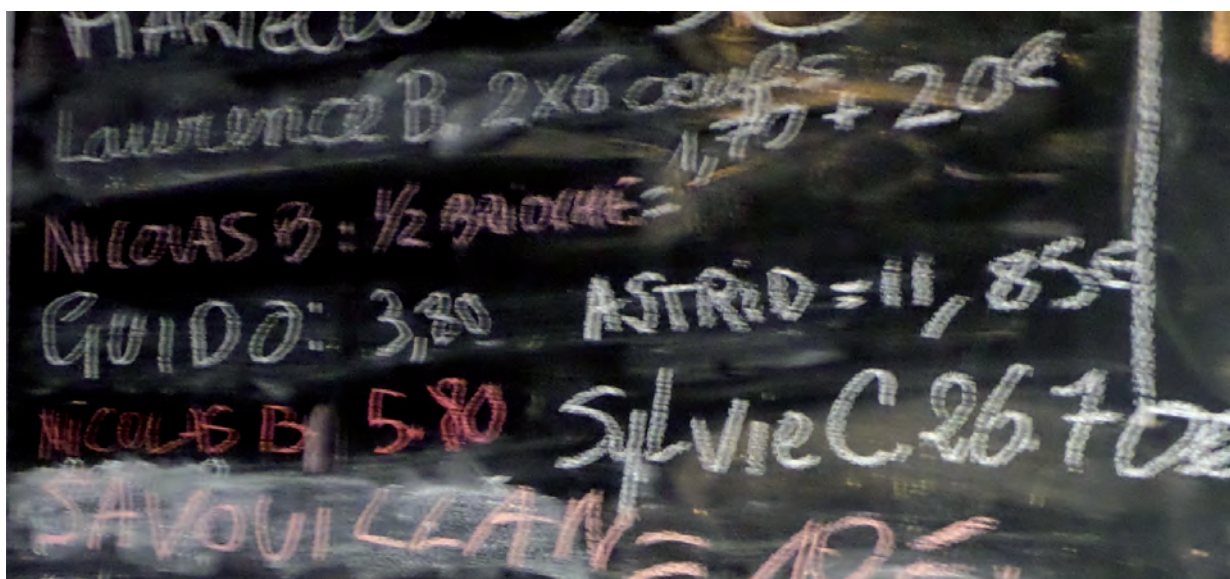 Laurence B. 2x6 oeufs + 20€
NICOLAS B : 1/2 BRIOCHE = 1,70
GUIDO: 3,80 ASTRID = 11,85€
NICOLAS B 5.80 Sylvie C 26.70€
SAVOUILLAN =